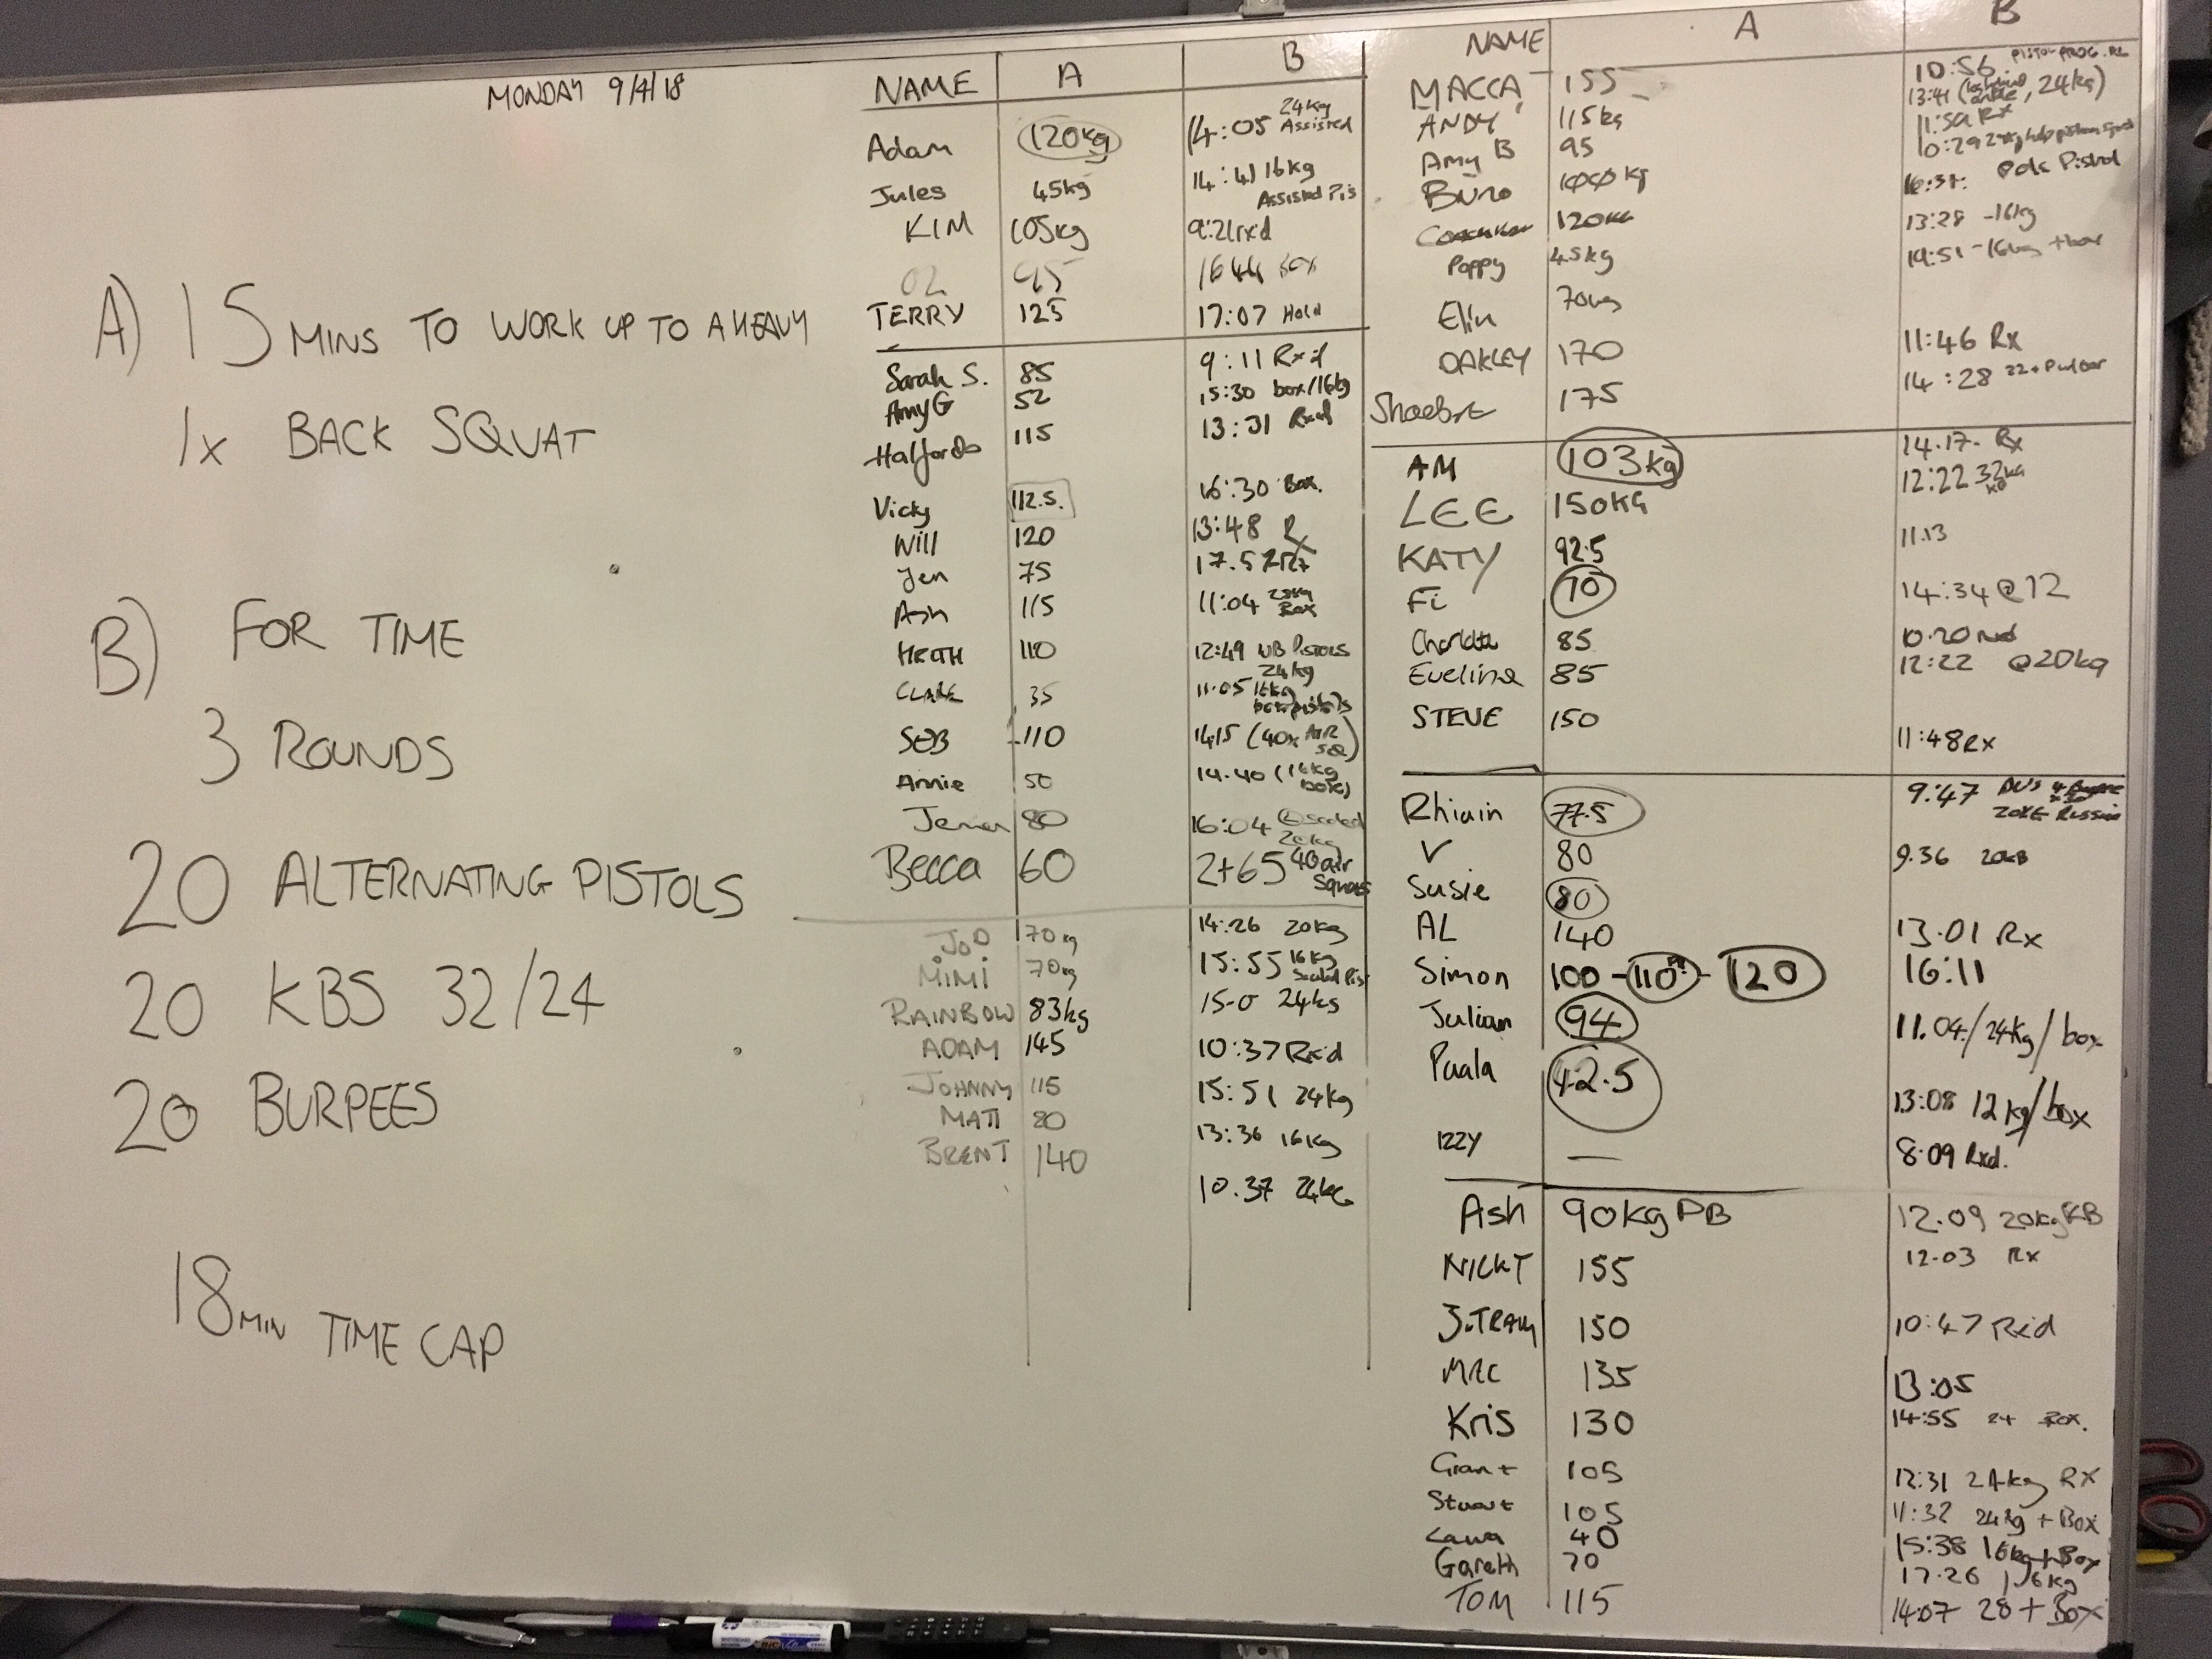 MONDAY 9/4/18
A) 15 MINS TO WORK UP TO A HEAVY
1x BACK SQUAT
B) FOR TIME
3 ROUNDS
20 ALTERNATING PISTOLS
20 KBS 32/24
20 BURPEES
18 MIN TIME CAP
NAME A B
Adam 120kg 14:05 24kg Assisted
Jules 45kg 14:41 16kg Assisted Pis
KIM 105kg 9:21rx'd
OZ 95 1644 Box
TERRY 125 17:07 Hold
Sarah S. 85 9:11 Rx'd
AmyG 52 15:30 box/16kg
Halfords 115 13:31 Rxd
Vicky 112.5. 16:30 Box.
Will 120 13:48 Rx
Jen 75 17.57 Rx
Ash 115 11:04 Box
110 12:49 PISTOLS 24kg
35 11:05 16kg box pistols
SEB 110 1415 (40x AIR SQ)
Annie 50 14.40 (16kg box)
80 16:04 scaled 20kg
Becca 60 2+65 40 air Squats
JoD 70kg 14:26 20kg
MIMI 70kg 15:55 16kg Scaled Pis
RAINBOW 83kg 15-0 24kg
ADAM 145 10:37 Rx'd
JOHNNY 115 15:51 24kg
MATT 80 13:36 16kg
BRENT 140 10.37 24kg
NAME A B
MACCA 155 10:56 PISTOL PROG. RX
ANDY 115kg 13:41 24kg)
Amy B 95 11:59 Rx
Buno 100kg 10:29
120KG 16:37: Pole Pistol
Poppy 45kg 13:28 -16kg
Elin 70kg 19:51 -16kg + bar
OAKLEY 170 11:46 Rx
175 14:28
AM 103kg 14.17- Rx
LEE 150KG 12:22 32kg
KATY 92.5 11.13
Fi 70 14:34 @12
Charlotte 85 10.20 rxd
Eveline 85 12:22 @20kg
STEVE 150 11:48 Rx
Rhiain 77.5 9:47 20KG Russian
V 80 9.36 20KB
Susie 80
AL 140 13.01 Rx
Simon 100 - 110 - 120 16:11
Julian 94 11.04/24Kg/box
Paala 42.5 13:08 12kg/box
IZZY — 8:09 Rxd.
Ash 90kg PB 12.09 20kg KB
NICKT 155 12.03 Rx
J.TRAM 150 10:47 Rx'd
135 13:05
Kris 130 14:55 24 Box.
Grant 105 12:31 24kg RX
Stuart 105 11:32 24kg + Box
40 15:38 16kg + Box
Gareth 70 17.26 16kg
TOM 115 14:07 28 + Box